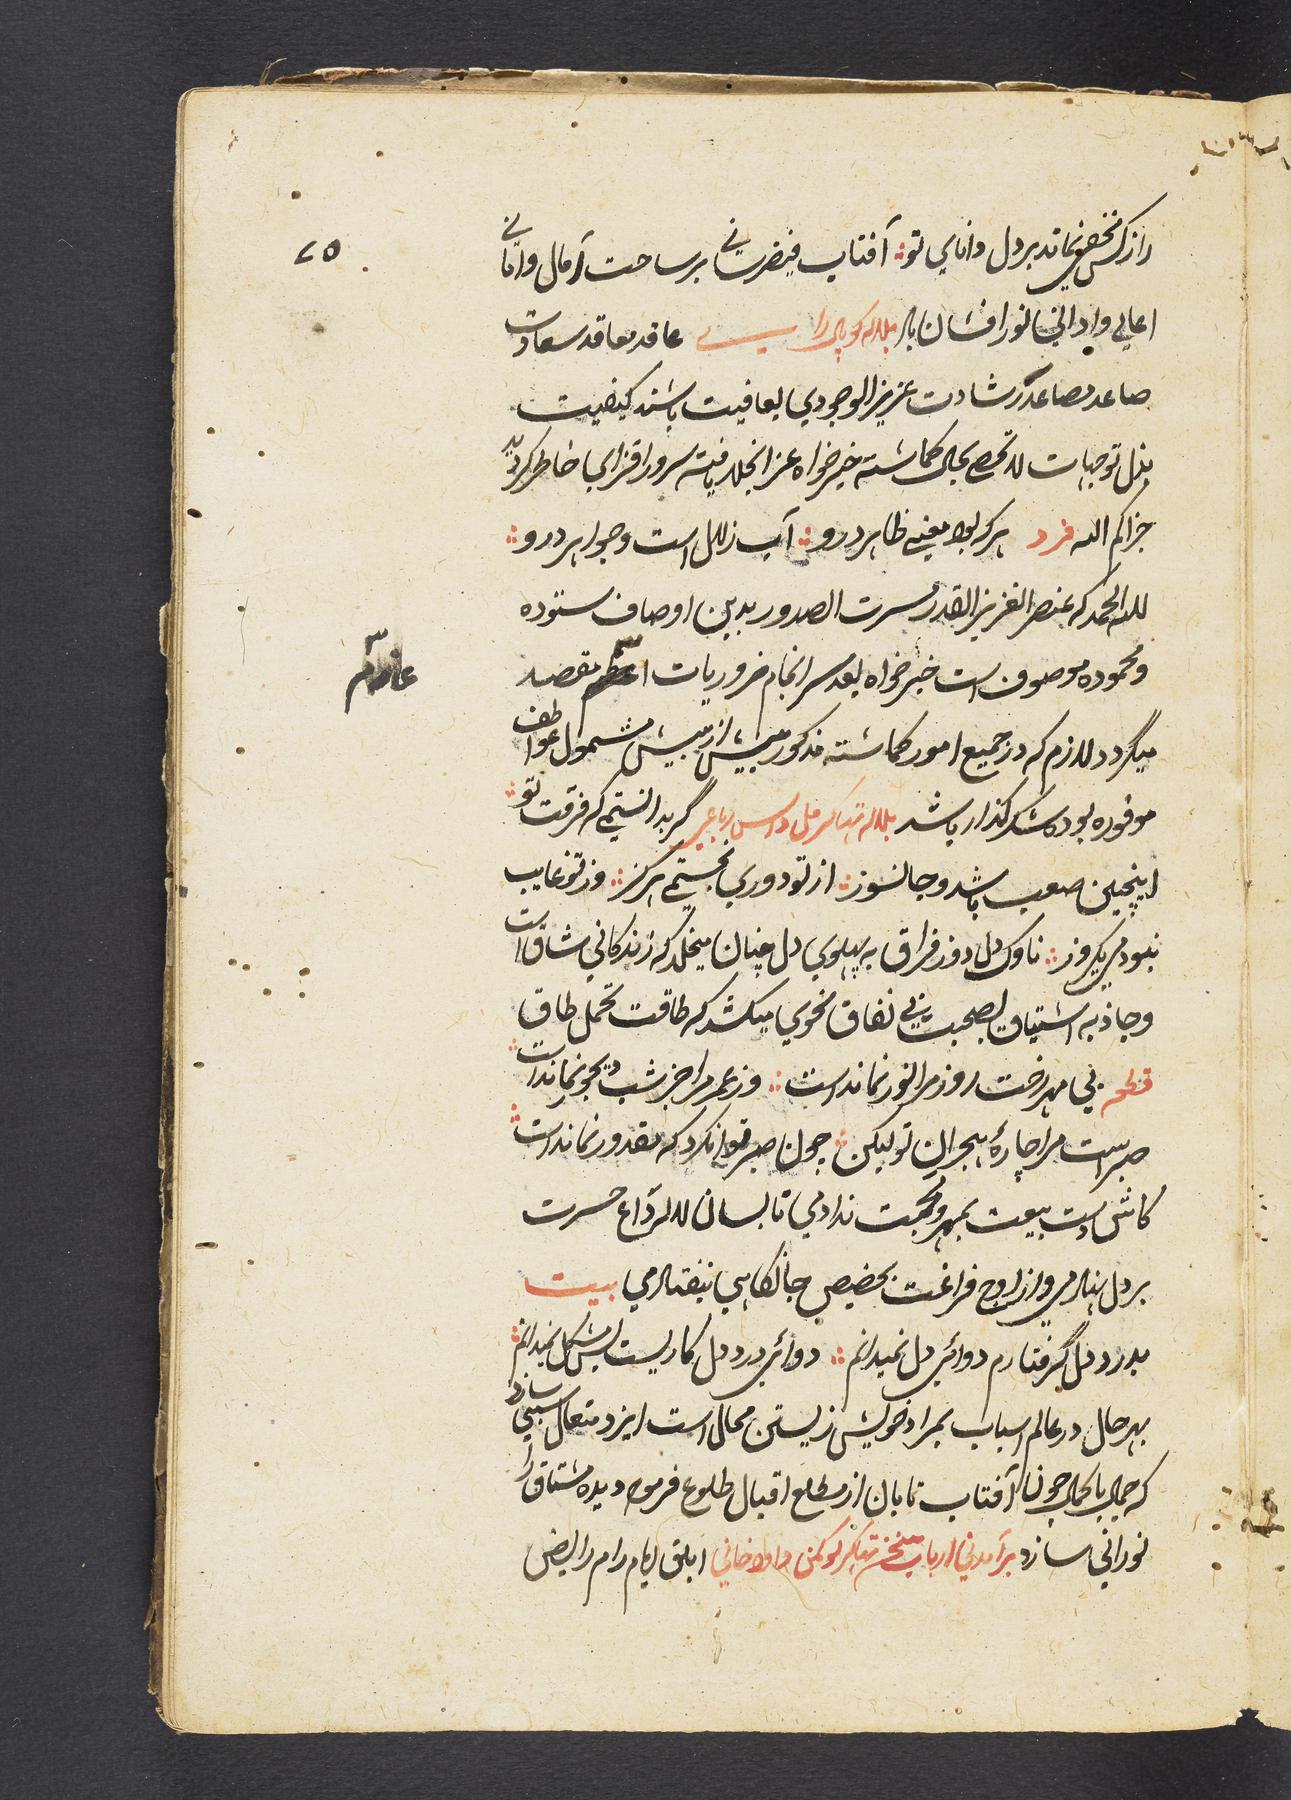 ۲۵
راز کس مخفی نماند بر دل دانای تو آفتاب فیض ربانی بر ساحت آمال و امانی
اعالی و ادانی نور افشان باد بلاله کوپال رای عاقد معاقد سعادت
صاعد مصاعد رشادت عزیز الوجودی بعافیت باشند کیفیت
بذل توجهات بحال گماشته خیر خواه عز انجلا یافته سرور افزای خاطر گردید
جزاکم الله فرد هر که بود معنی ظاهر درو آب زلال است و جواهر درو
لله الحمد که عنصر العزیز القدر مسرت الصدور بدین اوصاف ستوده
و محموده موصوف است خیر خواه بعد سر انجام ضروریات اعظم مقصد
عازم
میگردد لازم که در جمیع امور گماشته مذکور بیش از بیش مشمول عواطف
موفوره بوده شکر گذار باشد بلاله داس رباعی گر بدانستمی که فرقت تو
اینچنین صعب باشد و جانسوز از تو دوری نجستمی هرگز وز تو غایب
نبودمی یکروز ناوک دل دوز فراق به پهلوی دل چنان میخلد که زندگانی شاق است
و جاذبه اشتیاق بصحبت بی نفاق نحوی میکشد که طاقت تحمل طاق
قطعه بی مهر رخت روز مرا نور نماندست وز عمر مرا جز شب دیجور نماندست
صبرست مرا چاره هجران تو لیکن چون صبر توان کرد که مقدور نماندست
کاش دست بیعت بمهر و محبت ندادمی تا بسان لاله داغ حسرت
بر دل ننهادمی و از اوج فراغت بحضیض جانکاهی نیفتادمی بیت
بدرد دل گرفتارم دوائی دل نمیدانم دوائی درد دل کاریست بس مشکل نمیدانم
بهر حال در عالم اسباب بمراد خویش زیستن محال است ایزد متعال سببی سازد
که جمال با کمال چون آفتاب تابان از مطلع اقبال طلوع فرموده دیده مشتاق را
نورانی سازد برآمدنی ارباب سخن ابلق ایام رام رایض